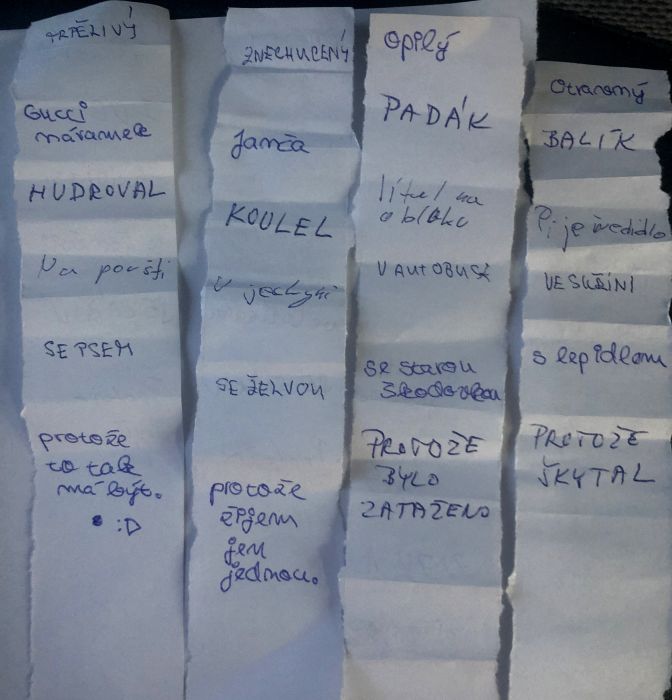 TRPĚLIVÝ
Gucci
náramek
HUDROVAL
Na poušti
SE PSEM
protože
to tak
má být.
:D
ZNECHUCENÝ
Janča
KOULEL
V jeskyni
SE ŽELVOU
protože
žijem
jen
jednou.
opilý
PADÁK
lítal na
obláku
V AUTOBUSE
se starou
škodovkou
PROTOŽE
BYLO
ZATAŽENO
Otrávený
BALÍK
Pije ředidlo
VE SKŘÍNI
s lepidlem
PROTOŽE
ŠKYTAL